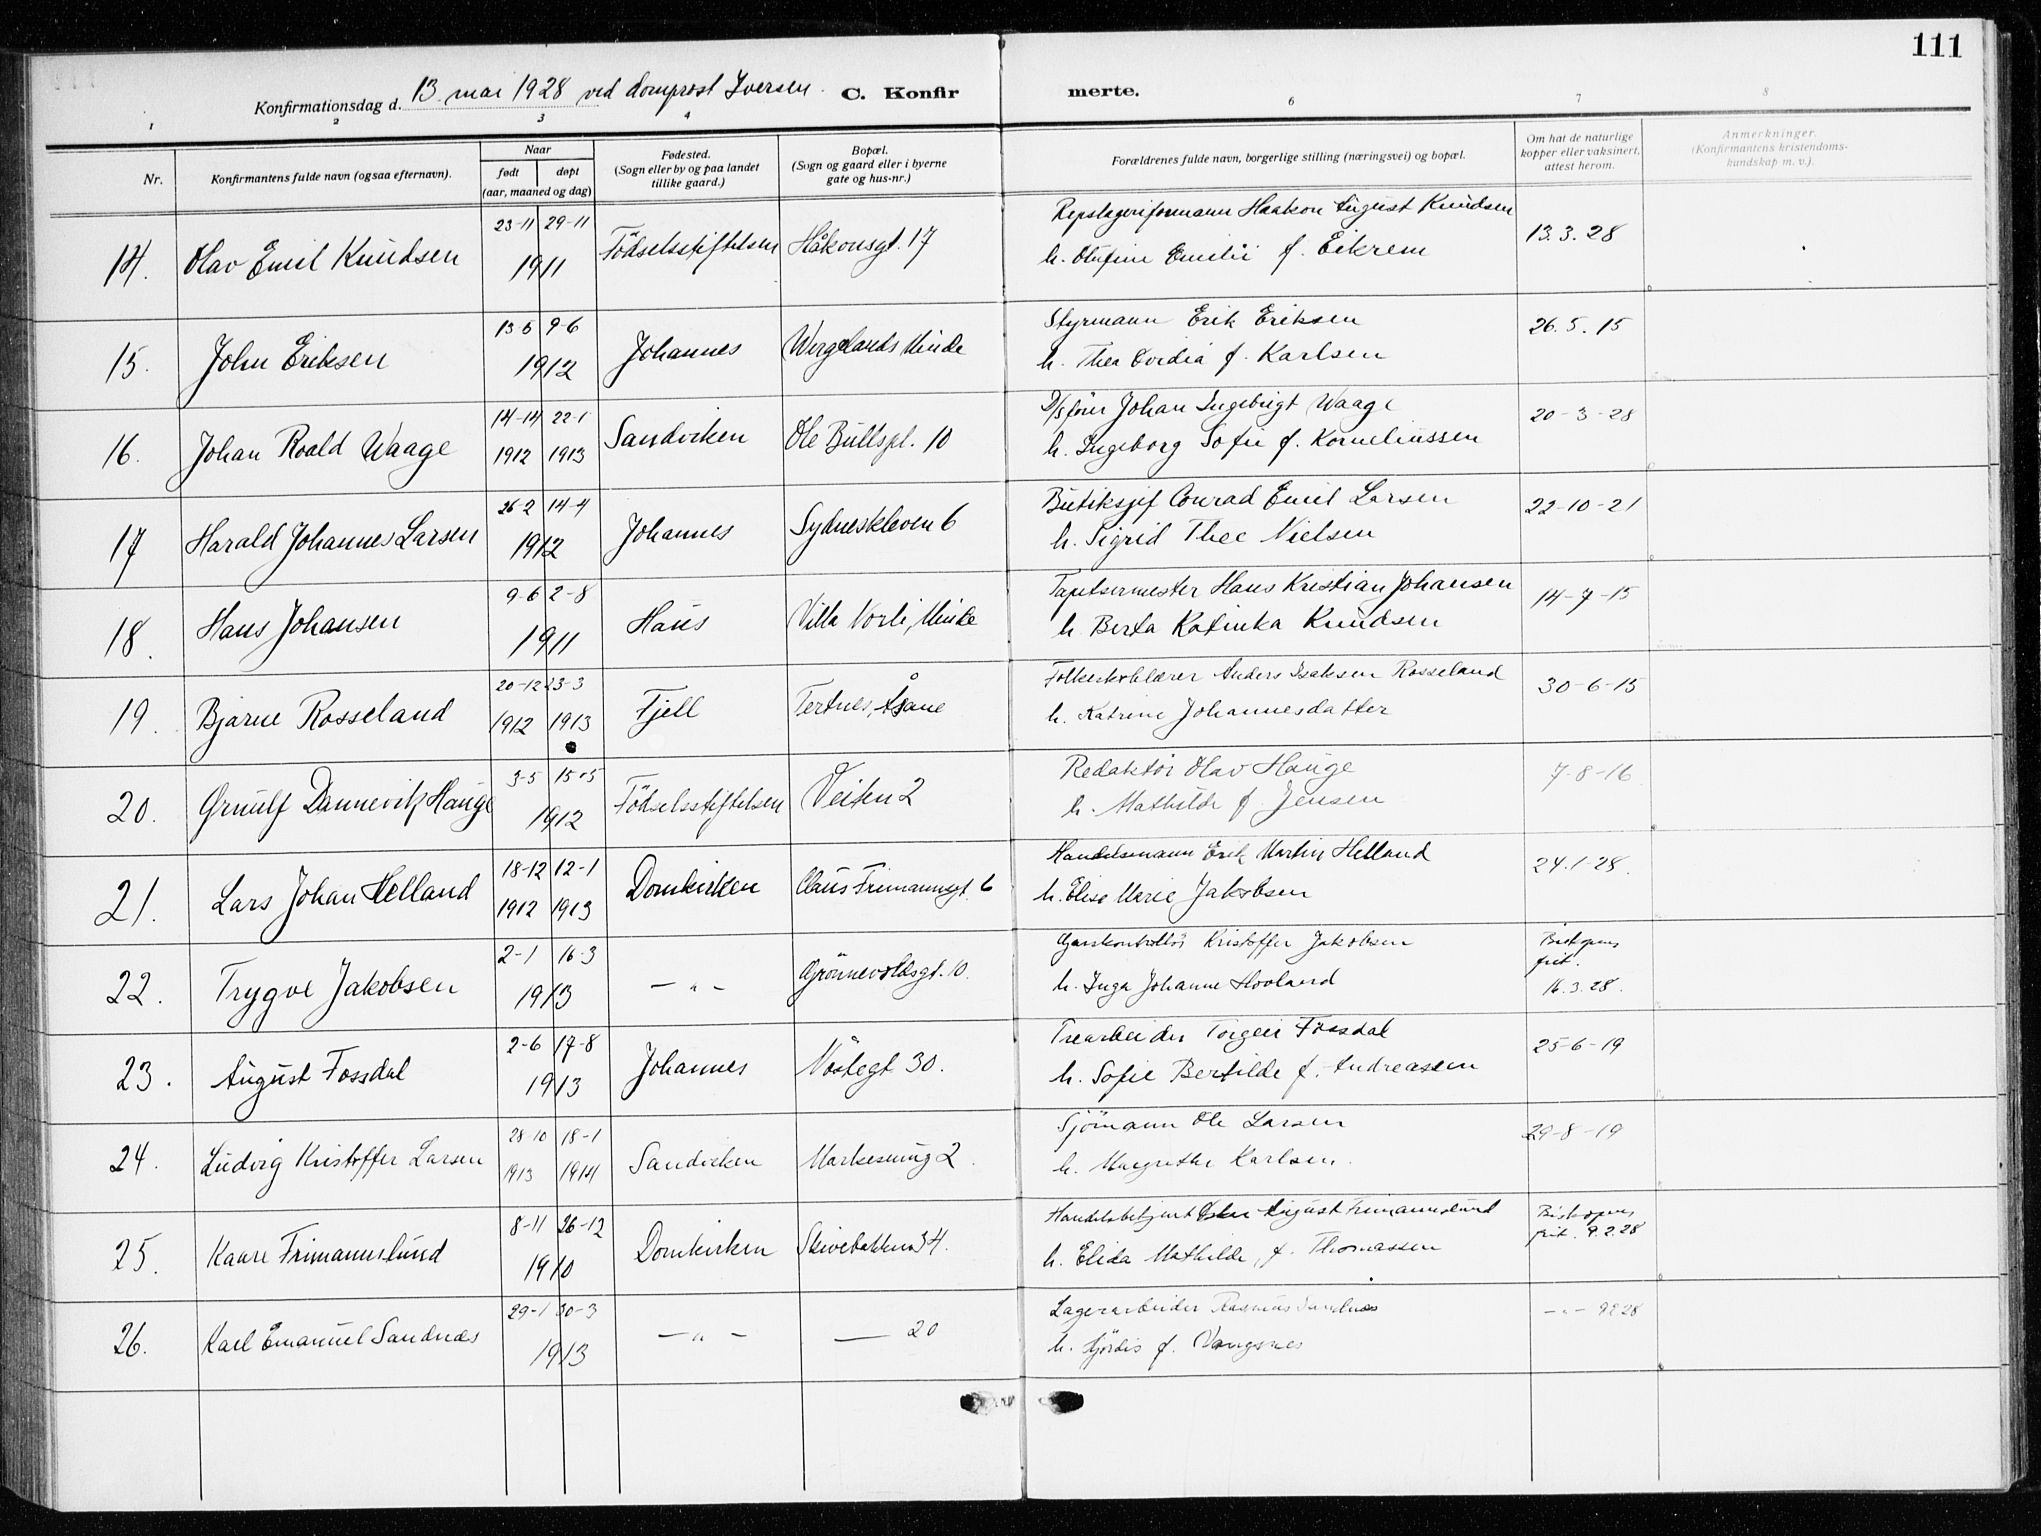 111
Konfirmationsdag d. 13. mai 1928 ved domprost Iversen. C. Konfir merte.
1 2 3 4 6 7 8
Nr.
Konfirmantens fulde navn (ogsaa efternavn).
Naar
født døpt
(aar, maaned og dag)
Fødested.
(Sogn eller by og paa landet
tillike gaard.)
Bopæl.
(Sogn og gaard eller i byerne
gate og hus-nr.)
Forældrenes fulde navn, borgerlige stilling (næringsvei) og bopæl.
Om hat de naturlige
kopper eller vaksinert,
attest herom.
Anmerkninger.
(Konfirmantens kristendoms-
kundskap m. v.).
14. Olav Emil Knudsen 23-11 29-11 1911 Födselsstiftelsen Håkonsgt. 17
Repslageriformann Haakon August Knudsen 13.3.28
h. Olufine Emilie f. Eikrem
15. John Eriksen 13-5 9-6 1912 Johannes Wergelands Minde
Styrmann Erik Eriksen 26.5.15
h. Thea Ovidia f. Karlsen
16. Johan Roald Waage 14-14 22-1 1912 1913 Sandviken Ole Bullspl. 10
D/s förer Johan Ingebrigt Waage 20-3-28
h. Ingeborg Sofie f. Korneliussen
17 Harald Johannes Larsen 26-2 14-4 1912 Johannes Sydneskleven 6
Butiksjef Conrad Emil Larsen 22-10-21
h. Sigrid Thee Nielsen
18. Hans Johansen 9-6 2-8 1911 Haus Villa Vorli, Minde
Tapetsermester Hans Kristian Johansen 14-7-15
h. Berta Katinka Knudsen
19. Bjarne Rosseland 20-12 23-3 1912 1913 Fjell Tertnes, Åsane
Folkeskolelærer Anders Isaksen Rosseland 30-6-15
h. Katrine Johannesdatter
20. Ørnulf Dannevik Hauge 3-5 15-5 1912 Födselsstiftelsen Veiten 2
Redaktör Olav Hauge 7-8-16
h. Mathilde f. Jensen
21. Lars Johan Helland 18-12 12-1 1912 1913 Domkirken Claus Frimannsgt. 6
Handelsmann Erik Martin Helland 24.1-28.
h. Elise Marie Jakobsen
22. Trygve Jakobsen 2-1 16-3 1913 — " — Grönnevoldsgt. 10.
Kristoffer Jakobsen Biskopens
frit.
h. Inga Johanne Hovland 16.3.28.
23. August Fossdal 2-6 17-8 1913 Johannes Nöstegt 30.
Trearbeider Torgeir Fossdal 25-6-19
h. Sofie Bertilde f. Andreassen
24. Ludvig Kristoffer Larsen 28-10 18-1 1913 1914 Sandviken Markesmug 2.
Sjömann Ole Larsen 29-8-19
h. Margrethe Karlsen.
25. Kaare Frimannslund 8-11 26-12 1910 Domkirken Skivebakken 34.
Handelsbetjent Oskar August Frimannslund Biskopens
frit. 9.2.28
h. Elida Mathilde, f. Thomassen
26. Karl Emanuel Sandnæs 29-1 30-3 1913 — " — —— 20
Lagerarbeider Rasmus Sandnæs — " — 9228
h. Hjördis f. Vangsnes